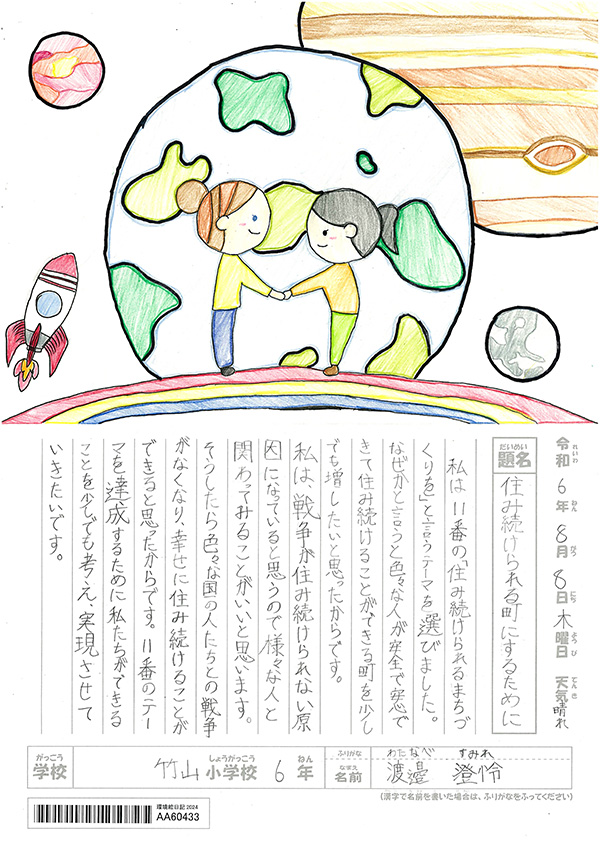 令和6年8月8日木曜日 天気晴れ
れいわ ねん がつ にち ようび てんき
だいめい
題名 住み続けられる町にするために
私は11番の「住み続けられるまちづ
くりを」と言うテーマを選びました。
なぜかと言うと色々な人が安全で安心で
きて住み続けることができる町を少し
でも増したいと思ったからです。
私は、戦争が住み続けられない原
因になっていると思うので様々な人と
関わってみることがいいと思います。
そうしたら色々な国の人たちとの戦争
がなくなり、幸せに住み続けることが
できると思ったからです。11番のテー
マを達成するために私たちができる
ことを少しでも考え、実現させて
いきたいです。
がっこう しょうがっこう ねん
学校 竹山小学校 6年
ふりがな わたなべ すみれ
なまえ
名前 渡邉 澄怜
(漢字で名前を書いた場合は、ふりがなをふってください)
環境絵日記2024
AA60433